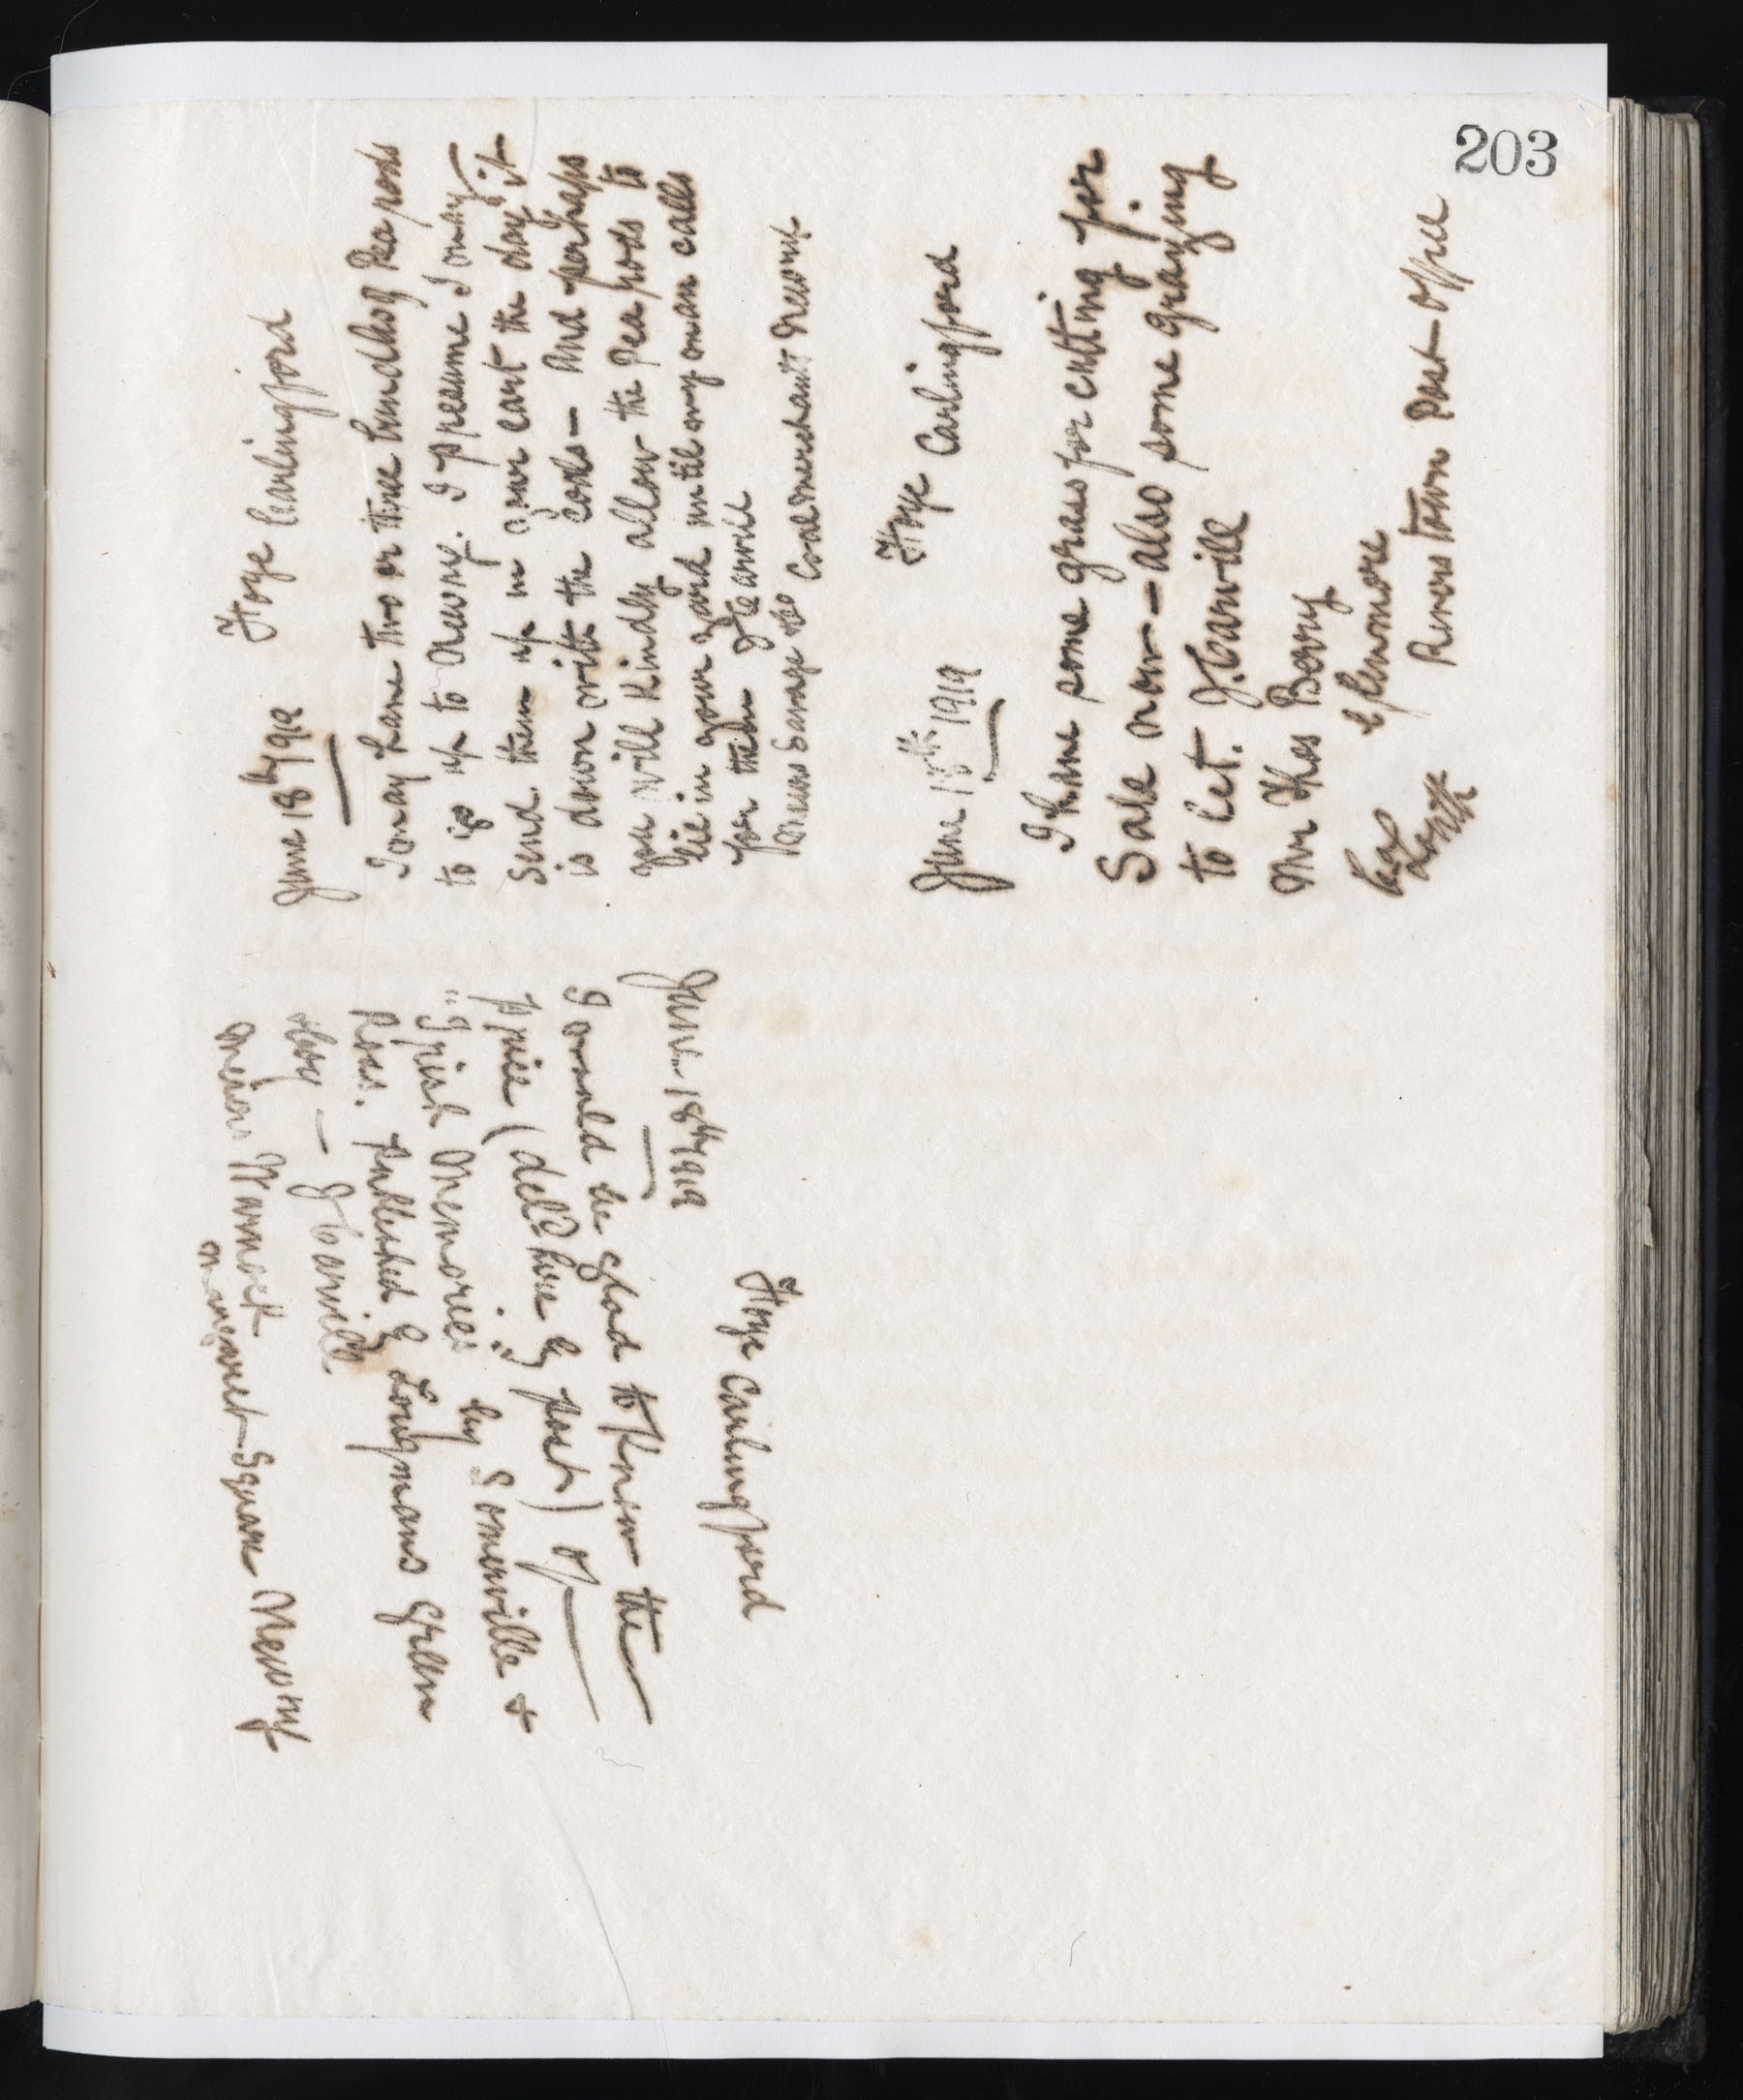 203
Foye Carlingford
June 18th 1919
I may have two or three hundred of Pea pods
to go up to Newry. I presume I may
Send them up in your cart the day it
is down with the Coals – And perhaps
you will kindly allow the Pea pods to
lie in your yard until my man calls
for them J Carvill
Messrs Savage Coal Merchants Newry
Foye Carlingford
June 18th 1919
I have some grass for cutting for
Sale now – also some grazing
to let. J. Carvill
Mr Thos Berry
Glenmore
Riverstown Post Office
Co Louth
Foye Carlingford
June 18th 1919
I would be glad to know the
price (deld here by post) of
"Irish Memories" by Somerville &
Ross. Published by Longmans Green
J Carvill
Messrs Warnock
Margaret Square Newry